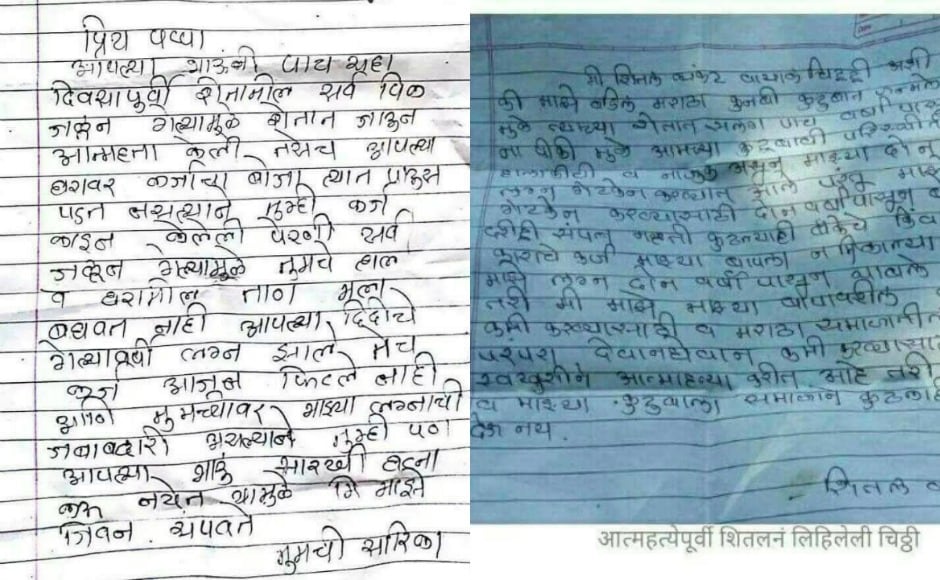 प्रिय पप्पा
आपल्या भाऊनी पाच सहा
दिवसापुर्वी शेतामील सर्व पिक
जळून गेल्यामुळे शेतात जाऊन
आत्महत्ता केली तसेच आपल्या
घरावर कर्जाचा बोजा त्यात
पडत नसल्याने तुम्ही कर्ज
काढून केलेली पेरणी सर्व
जळून गेल्यामुळे तुमचे हाल
व घरामील ताण मला
बघवत नाही आपल्या दिदीचे
गेल्यावर्षी लग्न झाले तेच
कर्ज आजून फिटले नाही
आणि तुमच्यावर माझ्या लग्नाची
जबाबदारी असल्याने तुम्ही पण
आपल्या भाऊ सारखी घटना
करू नयेत यामुळे मि माझे
जिवन संपवते
तुमची सारिका
मी शितल व्यंकट वायाळ चिठ्ठी अशी
की माझे वडिल मराठा कुनबी कुटुंबात जन्मले
मुळे त्याच्या शेतात सलग पाच वर्षा
ना पीकी मुळे आमच्या कुटुंबाची परिस्थीती
हालाकीची व नाजुक असून माझ्या दोन
लग्न गेटकेन करण्यात आले परंतू
गेटकेन करण्यासाठी दोन वर्षा पासून
संपत नव्हती कुठल्याही बँकेचे किंवा
कर्ज माझ्या बापाला न मिळाल्या
माझे लग्न दोन वर्षा पासून थांबले
मी माझे माझ्या बापावरील
कमी करण्यासाठी व मराठा समाजातील
परंपरा देवानघेवान कमी करण्यासा
स्वखुशीने आत्माहत्या करीत आहे तरी
व माझ्या कुटुंबाला समाजाने
देऊ नये.
शितल व
आत्महत्येपूर्वी शितलनं लिहिलेली चिठ्ठी